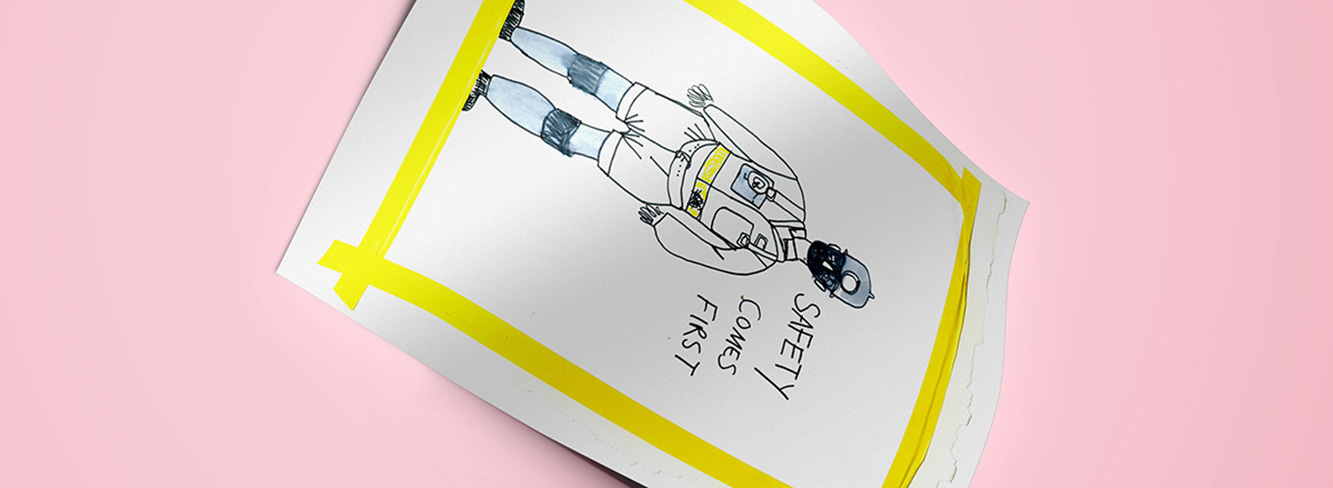 SAFETY
COMES
FIRST